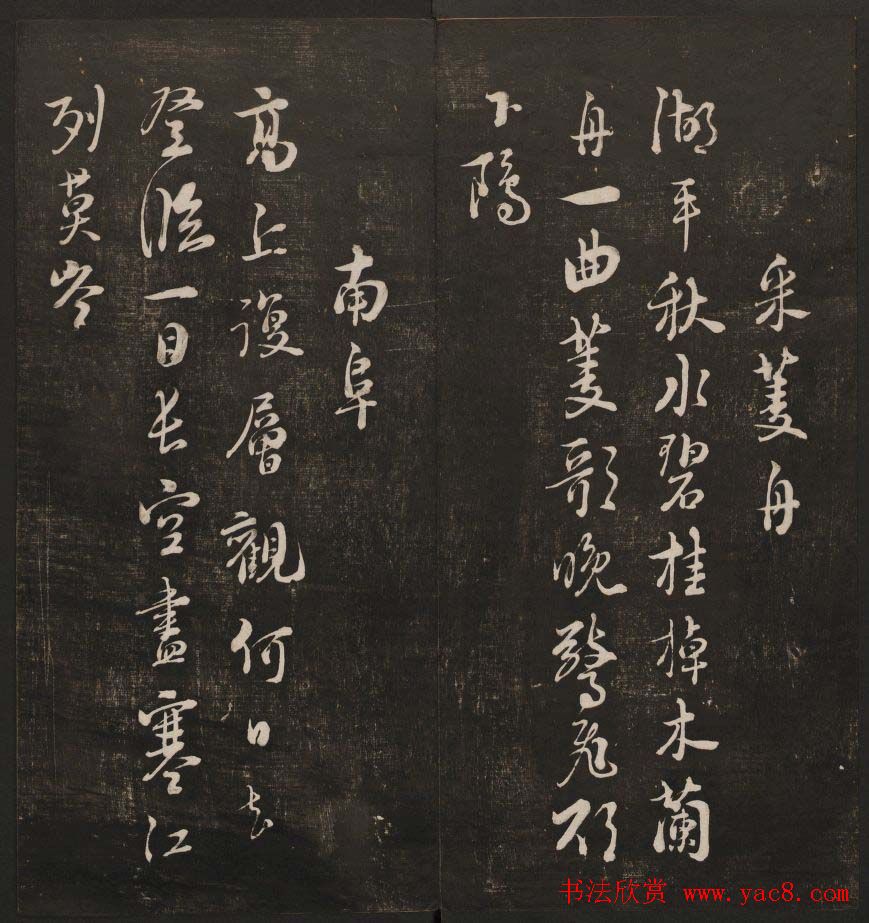 采菱舟
湖平秋水碧桂棹木蘭
舟一曲菱歌晚驚飛欲
下鷗
南阜
高上復層觀何日去
登臨一目長空盡寒江
列莫岑
书法欣赏 www.yac8.com